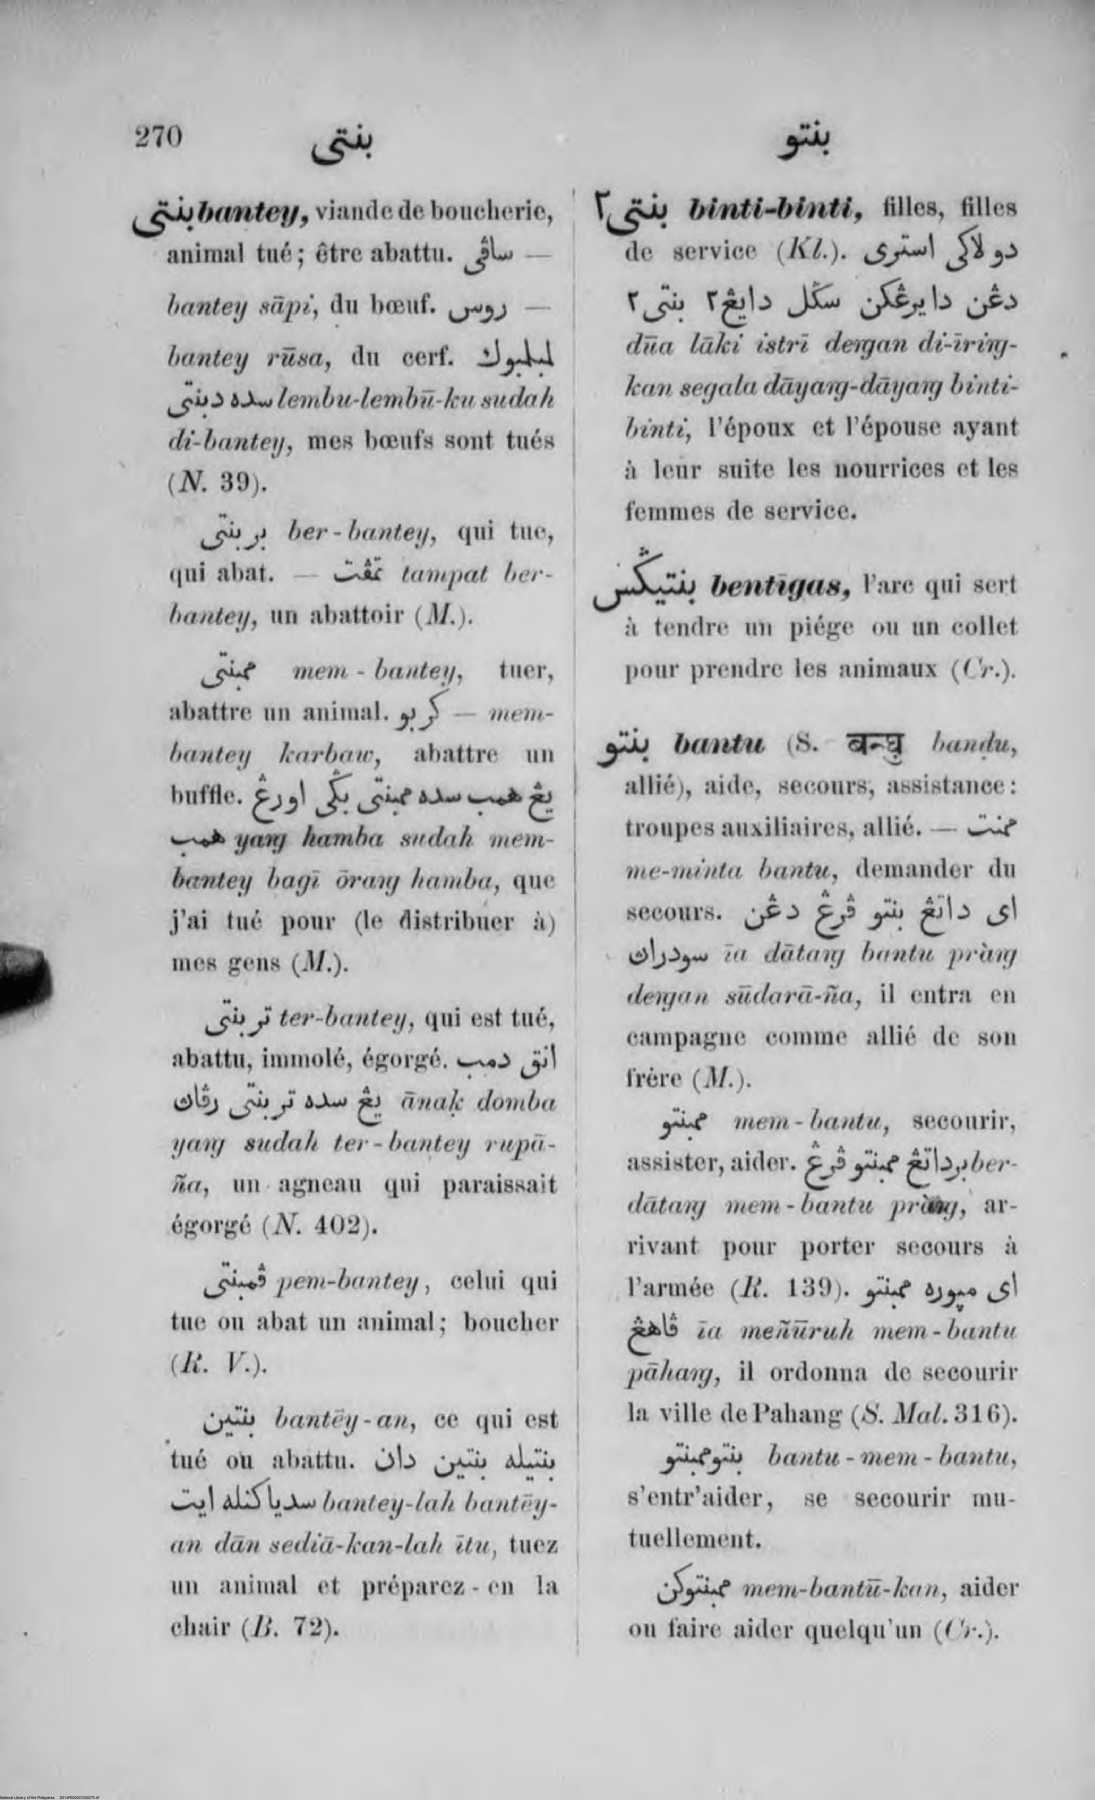 270
بنتي
بنتو
بنتي bantey, viande de boucherie,
animal tué; être abattu. ساڤي —
bantey sāpi, du bœuf. روس —
bantey rūsa, du cerf. لمبلمبوك
سده دبنتي lembu-lembū-ku sudah
di-bantey, mes bœufs sont tués
(N. 39).
بربنتي ber-bantey, qui tue,
qui abat. — تمڤت tampat ber-
bantey, un abattoir (M.).
ممبنتي mem-bantey, tuer,
abattre un animal. كربو — mem-
bantey karbaw, abattre un
buffle. يڠ همب سده ممبنتي بڬي اورڠ
همب yaŋ hamba sudah mem-
bantey bagī ōraŋ hamba, que
j'ai tué pour (le distribuer à)
mes gens (M.).
تربنتي ter-bantey, qui est tué,
abattu, immolé, égorgé. انق دمب
يڠ سده تربنتي رڤاڽ ānaḳ domba
yaŋ sudah ter-bantey rupā-
ña, un agneau qui paraissait
égorgé (N. 402).
ڤمبنتي pem-bantey, celui qui
tue ou abat un animal; boucher
(R. V.).
بنتين bantēy-an, ce qui est
tué ou abattu. بنتيله بنتين دان
سدياكنله ايت bantey-lah bantēy-
an dān sediā-kan-lah ītu, tuez
un animal et préparez-en la
chair (B. 72).
بنتي٢ binti-binti, filles, filles
de service (Kl.). دو لاكي استري
دڠن دايرڠكن سڬل دايڠ٢ بنتي٢
dūa lāki istrī deŋan di-īriŋ-
kan segala dāyaŋ-dāyaŋ binti-
binti, l'époux et l'épouse ayant
à leur suite les nourrices et les
femmes de service.
بنتيڬس bentīgas, l'arc qui sert
à tendre un piége ou un collet
pour prendre les animaux (Cr.).
بنتو bantu (S. बन्धु banḍu,
allié), aide, secours, assistance:
troupes auxiliaires, allié. — ممنت
me-minta bantu, demander du
secours. اي داتڠ بنتو ڤرڠ دڠن
سودراڽ īa dātaŋ bantu pràŋ
deŋan sūdarā-ña, il entra en
campagne comme allié de son
frère (M.).
ممبنتو mem-bantu, secourir,
assister, aider. برداتڠ ممبنتو ڤرڠ ber-
dātaŋ mem-bantu pràŋ, ar-
rivant pour porter secours à
l'armée (R. 139). اي مڽوره ممبنتو
ڤاهڠ īa meñūruh mem-bantu
pāhaŋ, il ordonna de secourir
la ville de Pahang (S. Mal. 316).
بنتوممبنتو bantu-mem-bantu,
s'entr'aider, se secourir mu-
tuellement.
ممبنتوكن mem-bantū-kan, aider
ou faire aider quelqu'un (Cr.).